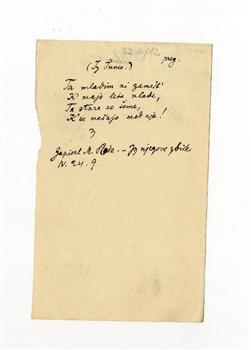 32 a/12
preg.
(Iz Tunc.)
Ta mladim ni zamer'
K' majo leta mlade,
Ta stare so šeme,
K' se mešajo med nje!
3
Zapisal M. — Iz njegove zbirke
N. 24. 9